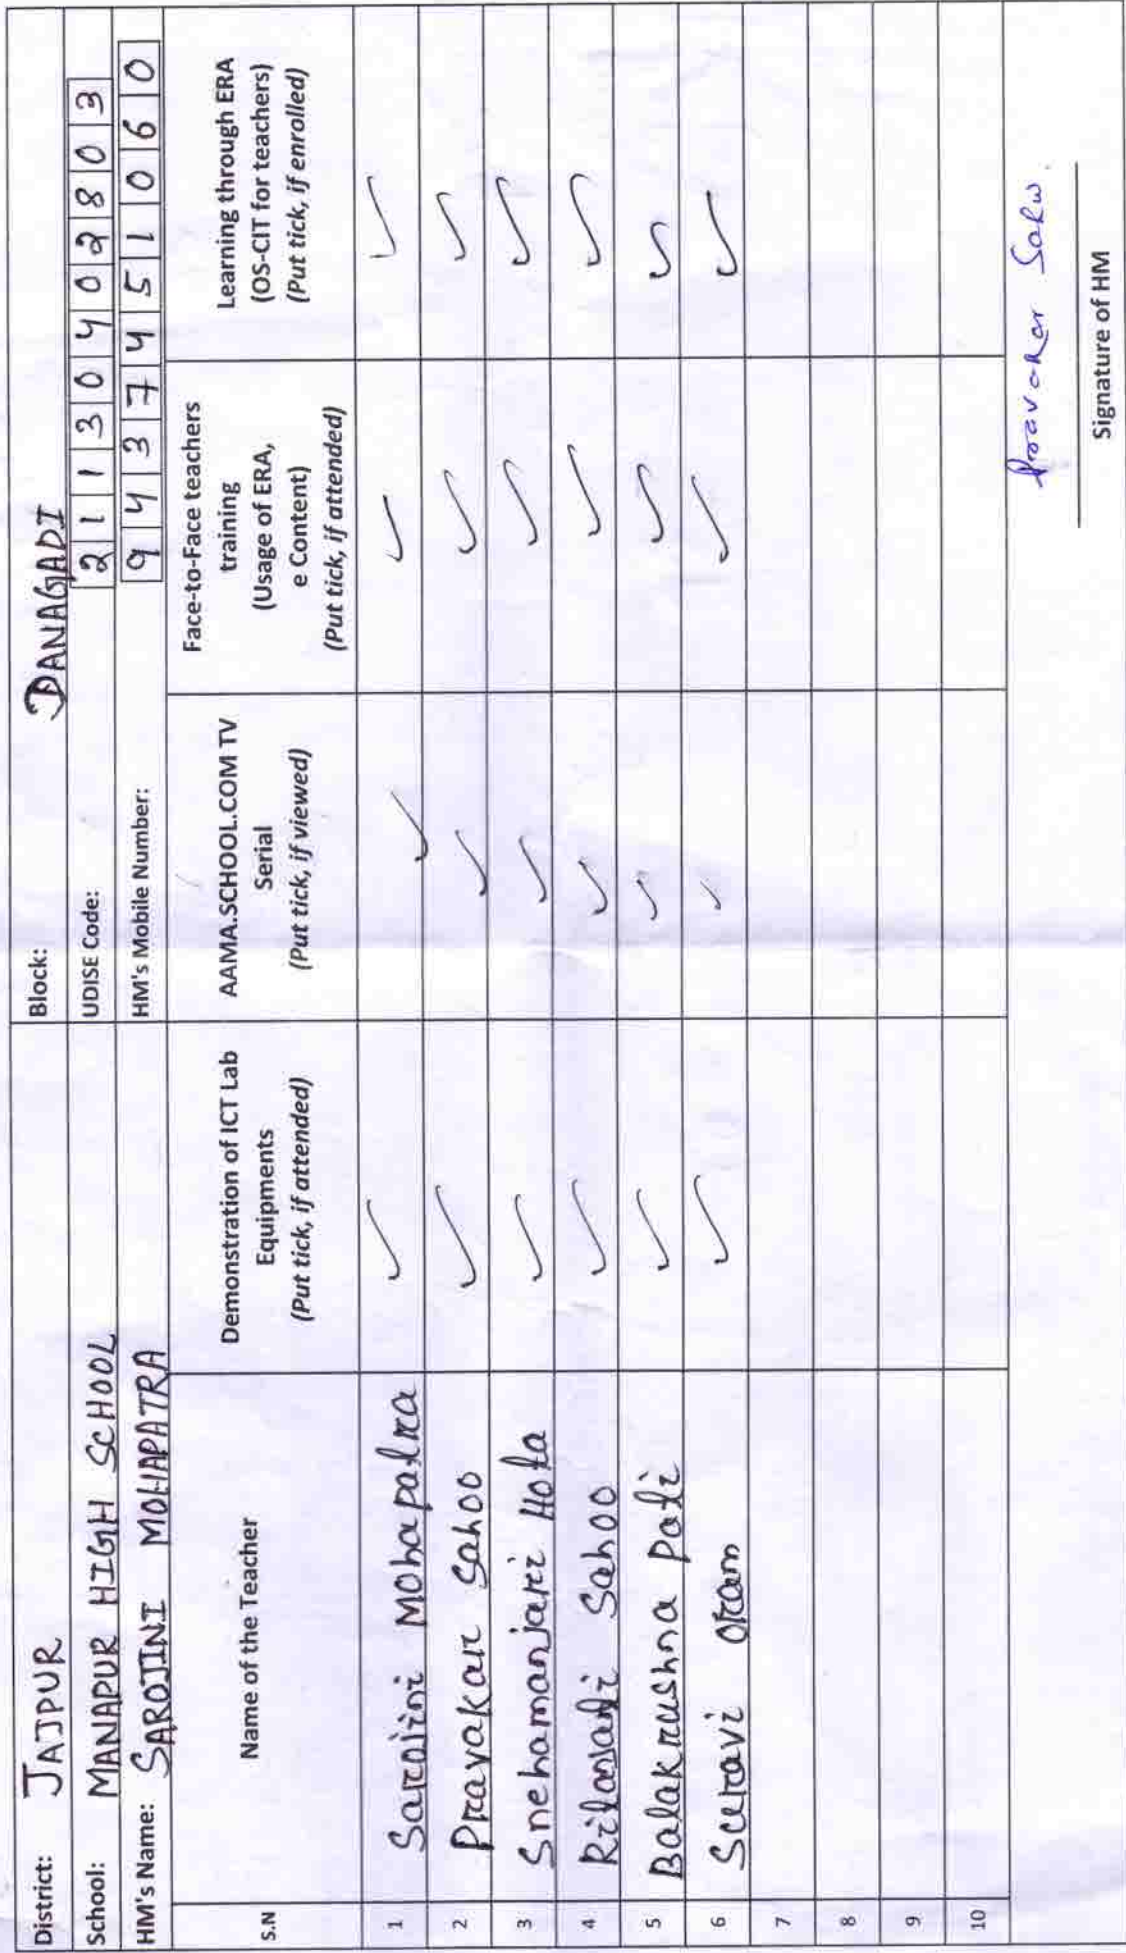 District: JAJPUR Block: DANAGADI
School: MANAPUR HIGH SCHOOL UDISE Code: 21130402803
HM's Name: SAROJINI MOHAPATRA HM's Mobile Number: 9437451060
S.N Name of the Teacher Demonstration of ICT Lab Equipments (Put tick, if attended) AAMA.SCHOOL.COM TV Serial (Put tick, if viewed) Face-to-Face teachers training (Usage of ERA, e Content) (Put tick, if attended) Learning through ERA (OS-CIT for teachers) (Put tick, if enrolled)
1 Sarojini Mohapatra ✓ ✓ ✓ ✓
2 Pravakar Sahoo ✓ ✓ ✓ ✓
3 Snehamanjari Hota ✓ ✓ ✓ ✓
4 Sahoo ✓ ✓ ✓ ✓
5 Balakrushna Pati ✓ ✓ ✓ ✓
6 Suravi Oram ✓ ✓ ✓ ✓
7
8
9
10
Pravakar Sahu
Signature of HM